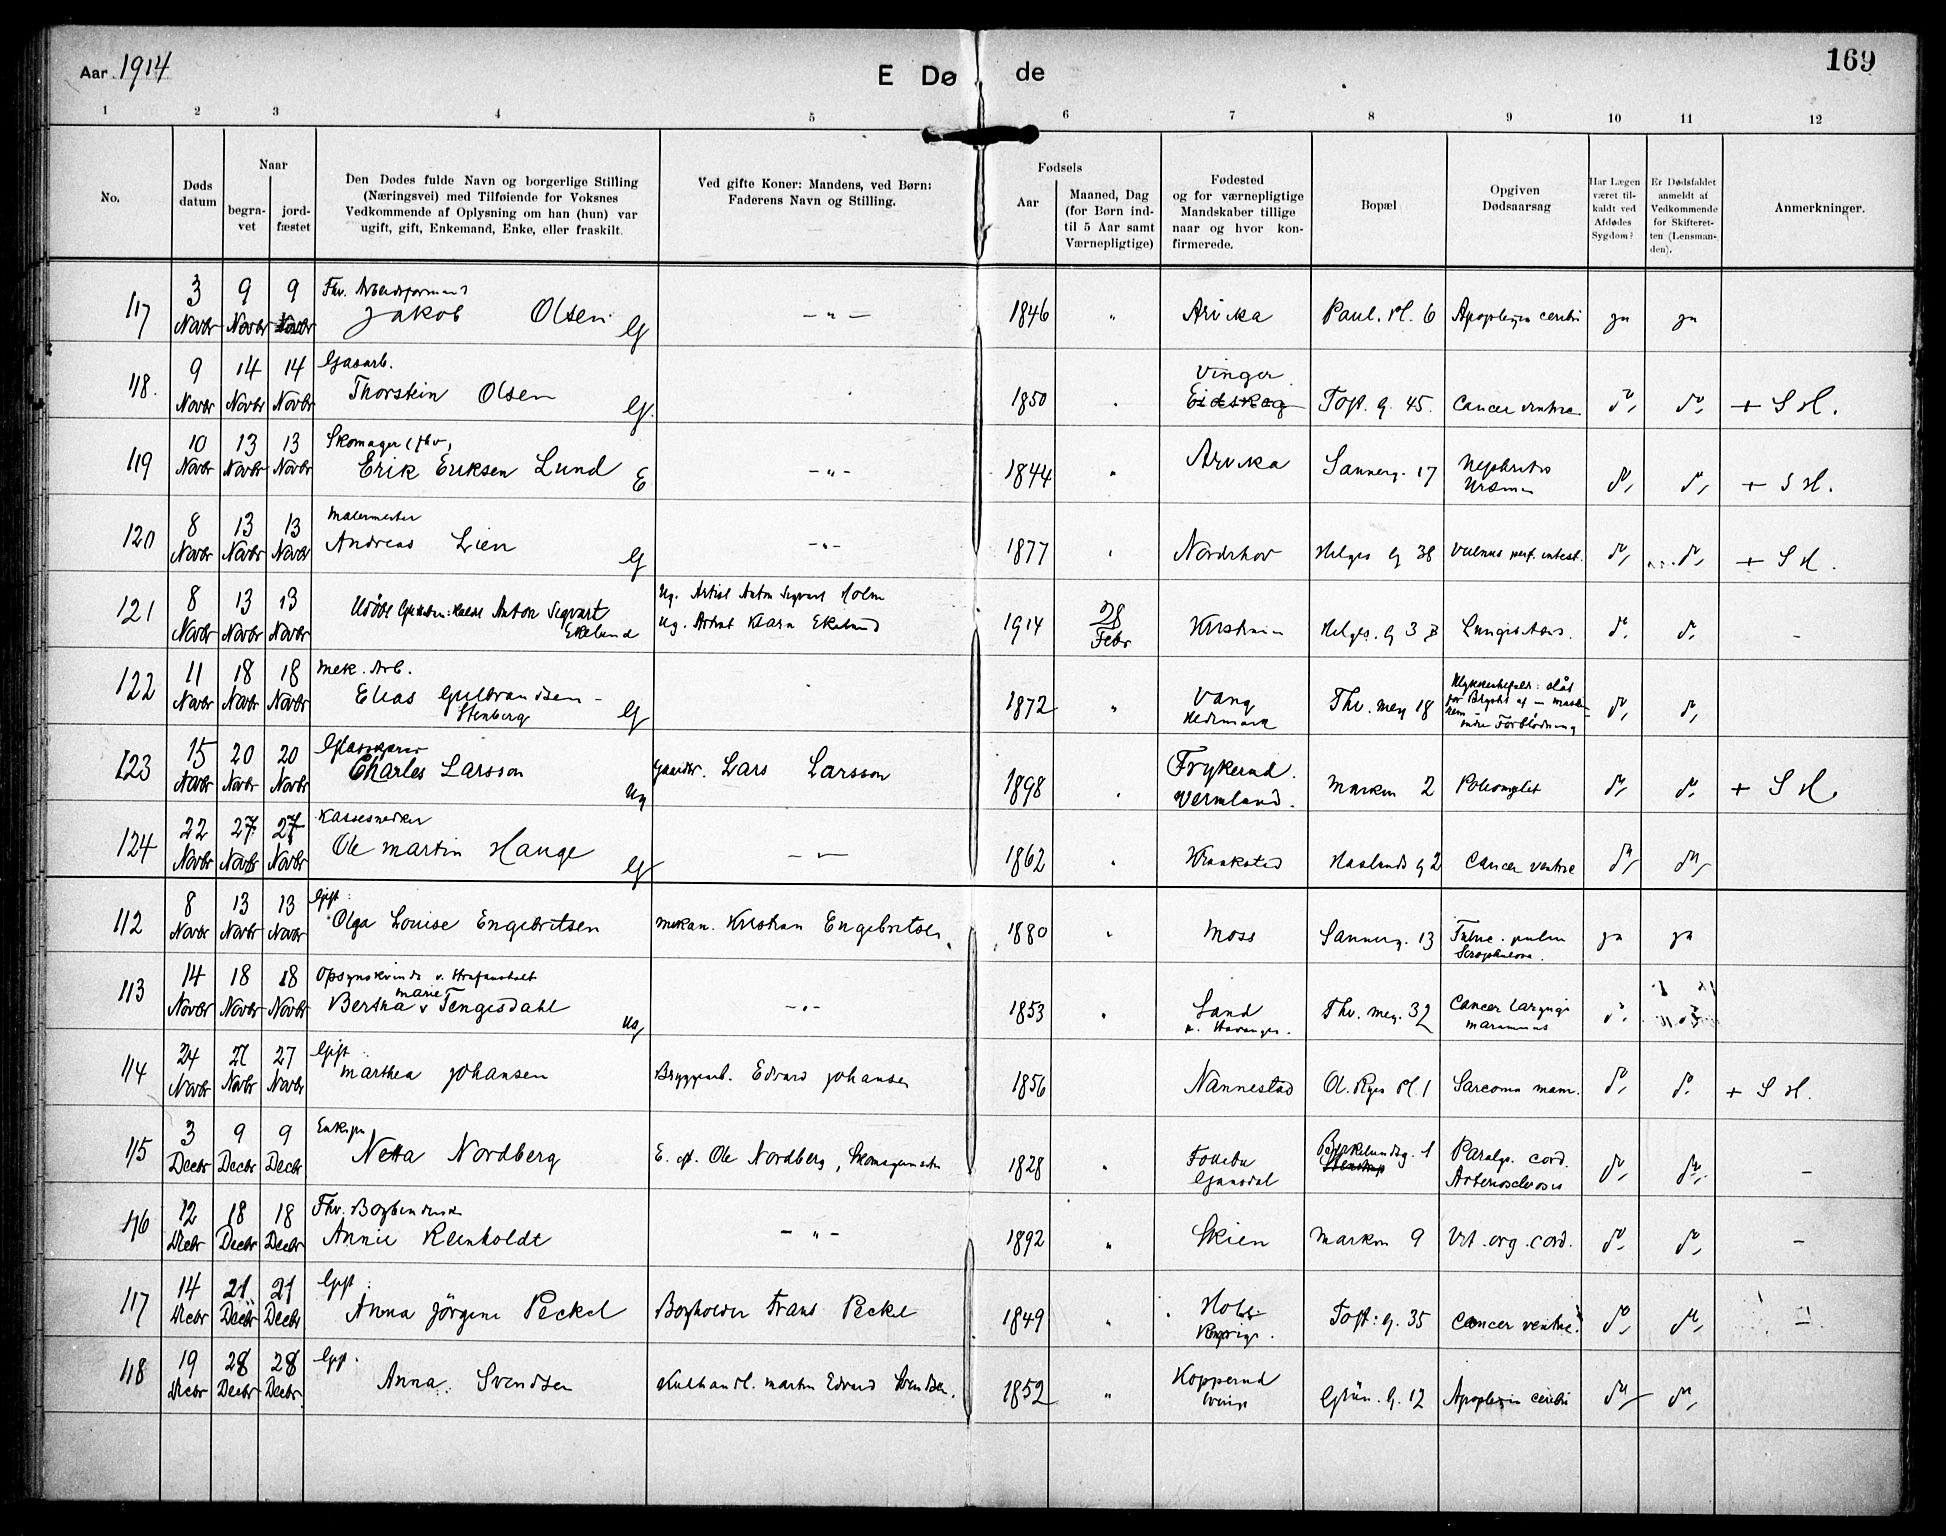 Aar 1914
E Dø de
169
1 2 3 4 5 6 7 8 9 10 11 12
No.
Døds datum
Naar
begra-vet
jord-fæstet
Den Dødes fulde Navn og borgerlige Stilling
(Næringsvei) med Tilføiende for Voksnes
Vedkommende af Oplysning om han (hun) var
ugift, gift, Enkemand, Enke, eller fraskilt.
Ved gifte Koner: Mandens, ved Børn:
Faderens Navn og Stilling.
Fødsels
Aar
Maaned, Dag
(for Børn ind-
til 5 Aar samt
Værnepligtige)
Fødested
og for værnepligtige
Mandskaber tillige
naar og hvor kon-
firmerede.
Bopæl
Opgiven
Dødsaarsag
Har Lægen
været til-
kaldt ved
Afdødes
Sygdom?
Er Dødsfaldet
anmeldt af
Vedkommende
for Skifteret-
ten (Lensman-
den).
Anmerkninger.
Fhv. Arbeidsformand
117 3 Novbr 9 Novbr 9 Novbr Jakob Olsen G — " — 1846 " Arvika Paul. Pl. 6 Apoplexia cerebri ja ja
Gasarb. Vinger
118. 9 Novbr 14 Novbr 14 Novbr Thorstein Olsen G. 1850 " Eidskog Toft. g. 45. Cancer ventric. do, do, + S H.
Skomager (fhv,
119 10 Novbr 13 Novbr 13 Novbr Erik Eriksen Lund E — " — 1844 " Arvika Sannerg. 17 Nephritis Uræmia do, do, + S H.
Malermester
120 8 Novbr 13 Novbr 13 Novbr Andreas Lien G — " — 1877 " Norderhov Helges g 38 Vulnus perf. intest. do, do, + S H.
Ug. Artist Anton Sigvart Holm
121 8 Novbr 13 Novbr 13 Novbr Anton Sigvart Ekelund Ug. Artist Klara Ekelund 1914 28 Febr Kristiania Helges. g 3 do. do. –
Mek. Arb.
122 11 Novbr 18 Novbr 18 Novbr Elias Gulbrandsen – Stenberg G 1872 " Vang Hedemark Thv. Mey 18 Ulykkestilfælde: slåt for Brystet af en Maskin – indre Forblödning do, do,
123 15 Novbr 20 Novbr 20 Novbr Charles Larsson Ug Gaardbr. Lars Larsson 1898 " Frykerud. Vermland. Marken 2 Poliomyelit do, do. + S H.
Kassesnedker
124 22 Novbr 27 Novbr 27 Novbr Ole Martin Hauge G — " — 1862 " Kraakstad Haslunds g 2 Cancer ventric do, do,
Gift:
112 8 Novbr 13 Novbr 13 Novbr Olga Louise Engebritsen Mekan. Kristian Engebritsen. 1880 " Moss Sannerg. 13 Tuberc. pulm Scrophulosa. ja ja
Opsynskvinde v. Strafanstalt
113 14 Novbr 18 Novbr 18 Novbr Bertha Marie Tengisdahl Ug — " — 1853 " Sand v. Stavanger. Thv. Mey. 32 Cancer laryngis marasmus do. do
Gift:
114 24 Novbr 27 Novbr 27 Novbr Marthea Johansen Bryggearb. Edvard Johansen 1856 Nannestad Ol. Ryes Pl. 1 Sarcoma mam. do, do. + S H.
Enkefru
115 3 Decbr 9 Decbr 9 Decbr Netta Nordberg E. ef. Ole Nordberg, Skomagermester 1828 " Gausdal Bjerkelundsg. 1 Paralys. cord. Arteriosclerosis do, do, –
Fhv. Bogbinderske
116 12 Decbr 18 Decbr 18 Decbr Annie Reinholdt — " — 1892 " Skien Marken 9 Vit. org. cord. do, do, –
Gift:
117 14 Decbr 21 Decbr 21 Decbr Anna Jörgine Peckel Bogholder Frans Peckel 1849 " Hobøl Toft: g. 35 Cancer ventric. do, do, –
Gift.
118 19 Decbr 28 Decbr 28 Decbr Anna Svendsen Kulhandl. Martin Edvard Svendsen. 1852 " Kopperud Grün. G. 12 Apoplexia cerebri do, do,